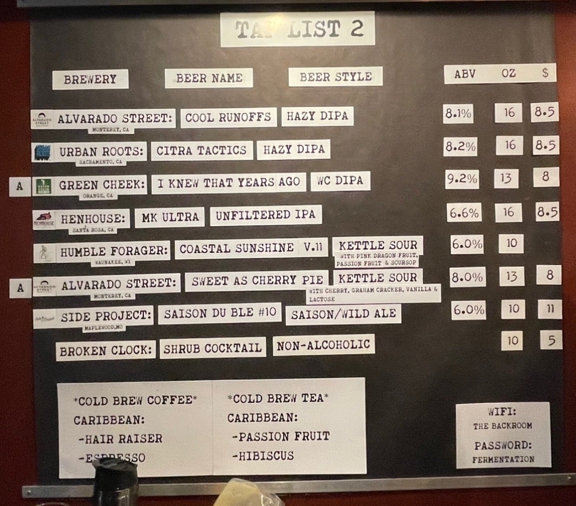 TAP LIST 2
BREWERY BEER NAME BEER STYLE ABV OZ $
ALVARADO STREET: COOL RUNOFFS HAZY DIPA 8.1% 16 8.5
MONTEREY, CA
URBAN ROOTS: CITRA TACTICS HAZY DIPA 8.2% 16 8.5
SACRAMENTO, CA
A GREEN CHEEK: I KNEW THAT YEARS AGO WC DIPA 9.2% 13 8
ORANGE, CA
HENHOUSE: MK ULTRA UNFILTERED IPA 6.6% 16 8.5
SANTA ROSA, CA
HUMBLE FORAGER: COASTAL SUNSHINE V.11 KETTLE SOUR 6.0% 10
WAUNAKEE, WI WITH PINK DRAGON FRUIT,
PASSION FRUIT & SOURSOP
A ALVARADO STREET: SWEET AS CHERRY PIE KETTLE SOUR 8.0% 13 8
MONTEREY, CA WITH CHERRY, GRAHAM CRACKER, VANILLA &
LACTOSE
SIDE PROJECT: SAISON DU BLE #10 SAISON/WILD ALE 6.0% 10 11
MAPLEWOOD, MO
BROKEN CLOCK: SHRUB COCKTAIL NON-ALCOHOLIC 10 5
*COLD BREW COFFEE*
CARIBBEAN:
-HAIR RAISER
-ESPRESSO
*COLD BREW TEA*
CARIBBEAN:
-PASSION FRUIT
-HIBISCUS
WIFI:
THE BACKROOM
PASSWORD:
FERMENTATION